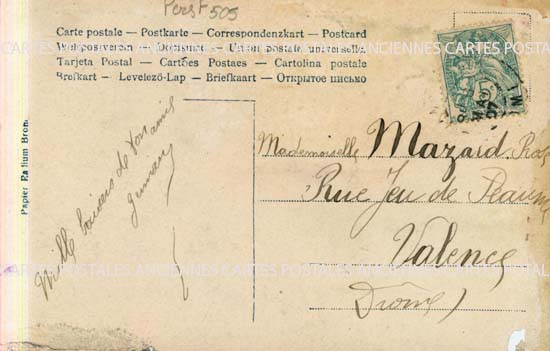 Perst 505
Carte postale – Postkarte – Correspondenzkart – Postcard
Weltpostverein – Dopisnice – Union postale universelle
Tarjeta Postal – Cartões Postaes – Cartolina postale
Brefkart – Levelező-Lap – Briefkaart – Открытое письмо
CARTES POSTALES ANCIENNES CARTES POSTALES
Papier Radium Brom.
Mille baisers de ton amie
Mademoiselle Mazard
Rue Jeu de Paume
Valence
Drôme
CARTES POSTALES ANCIENNES CARTES POSTALES